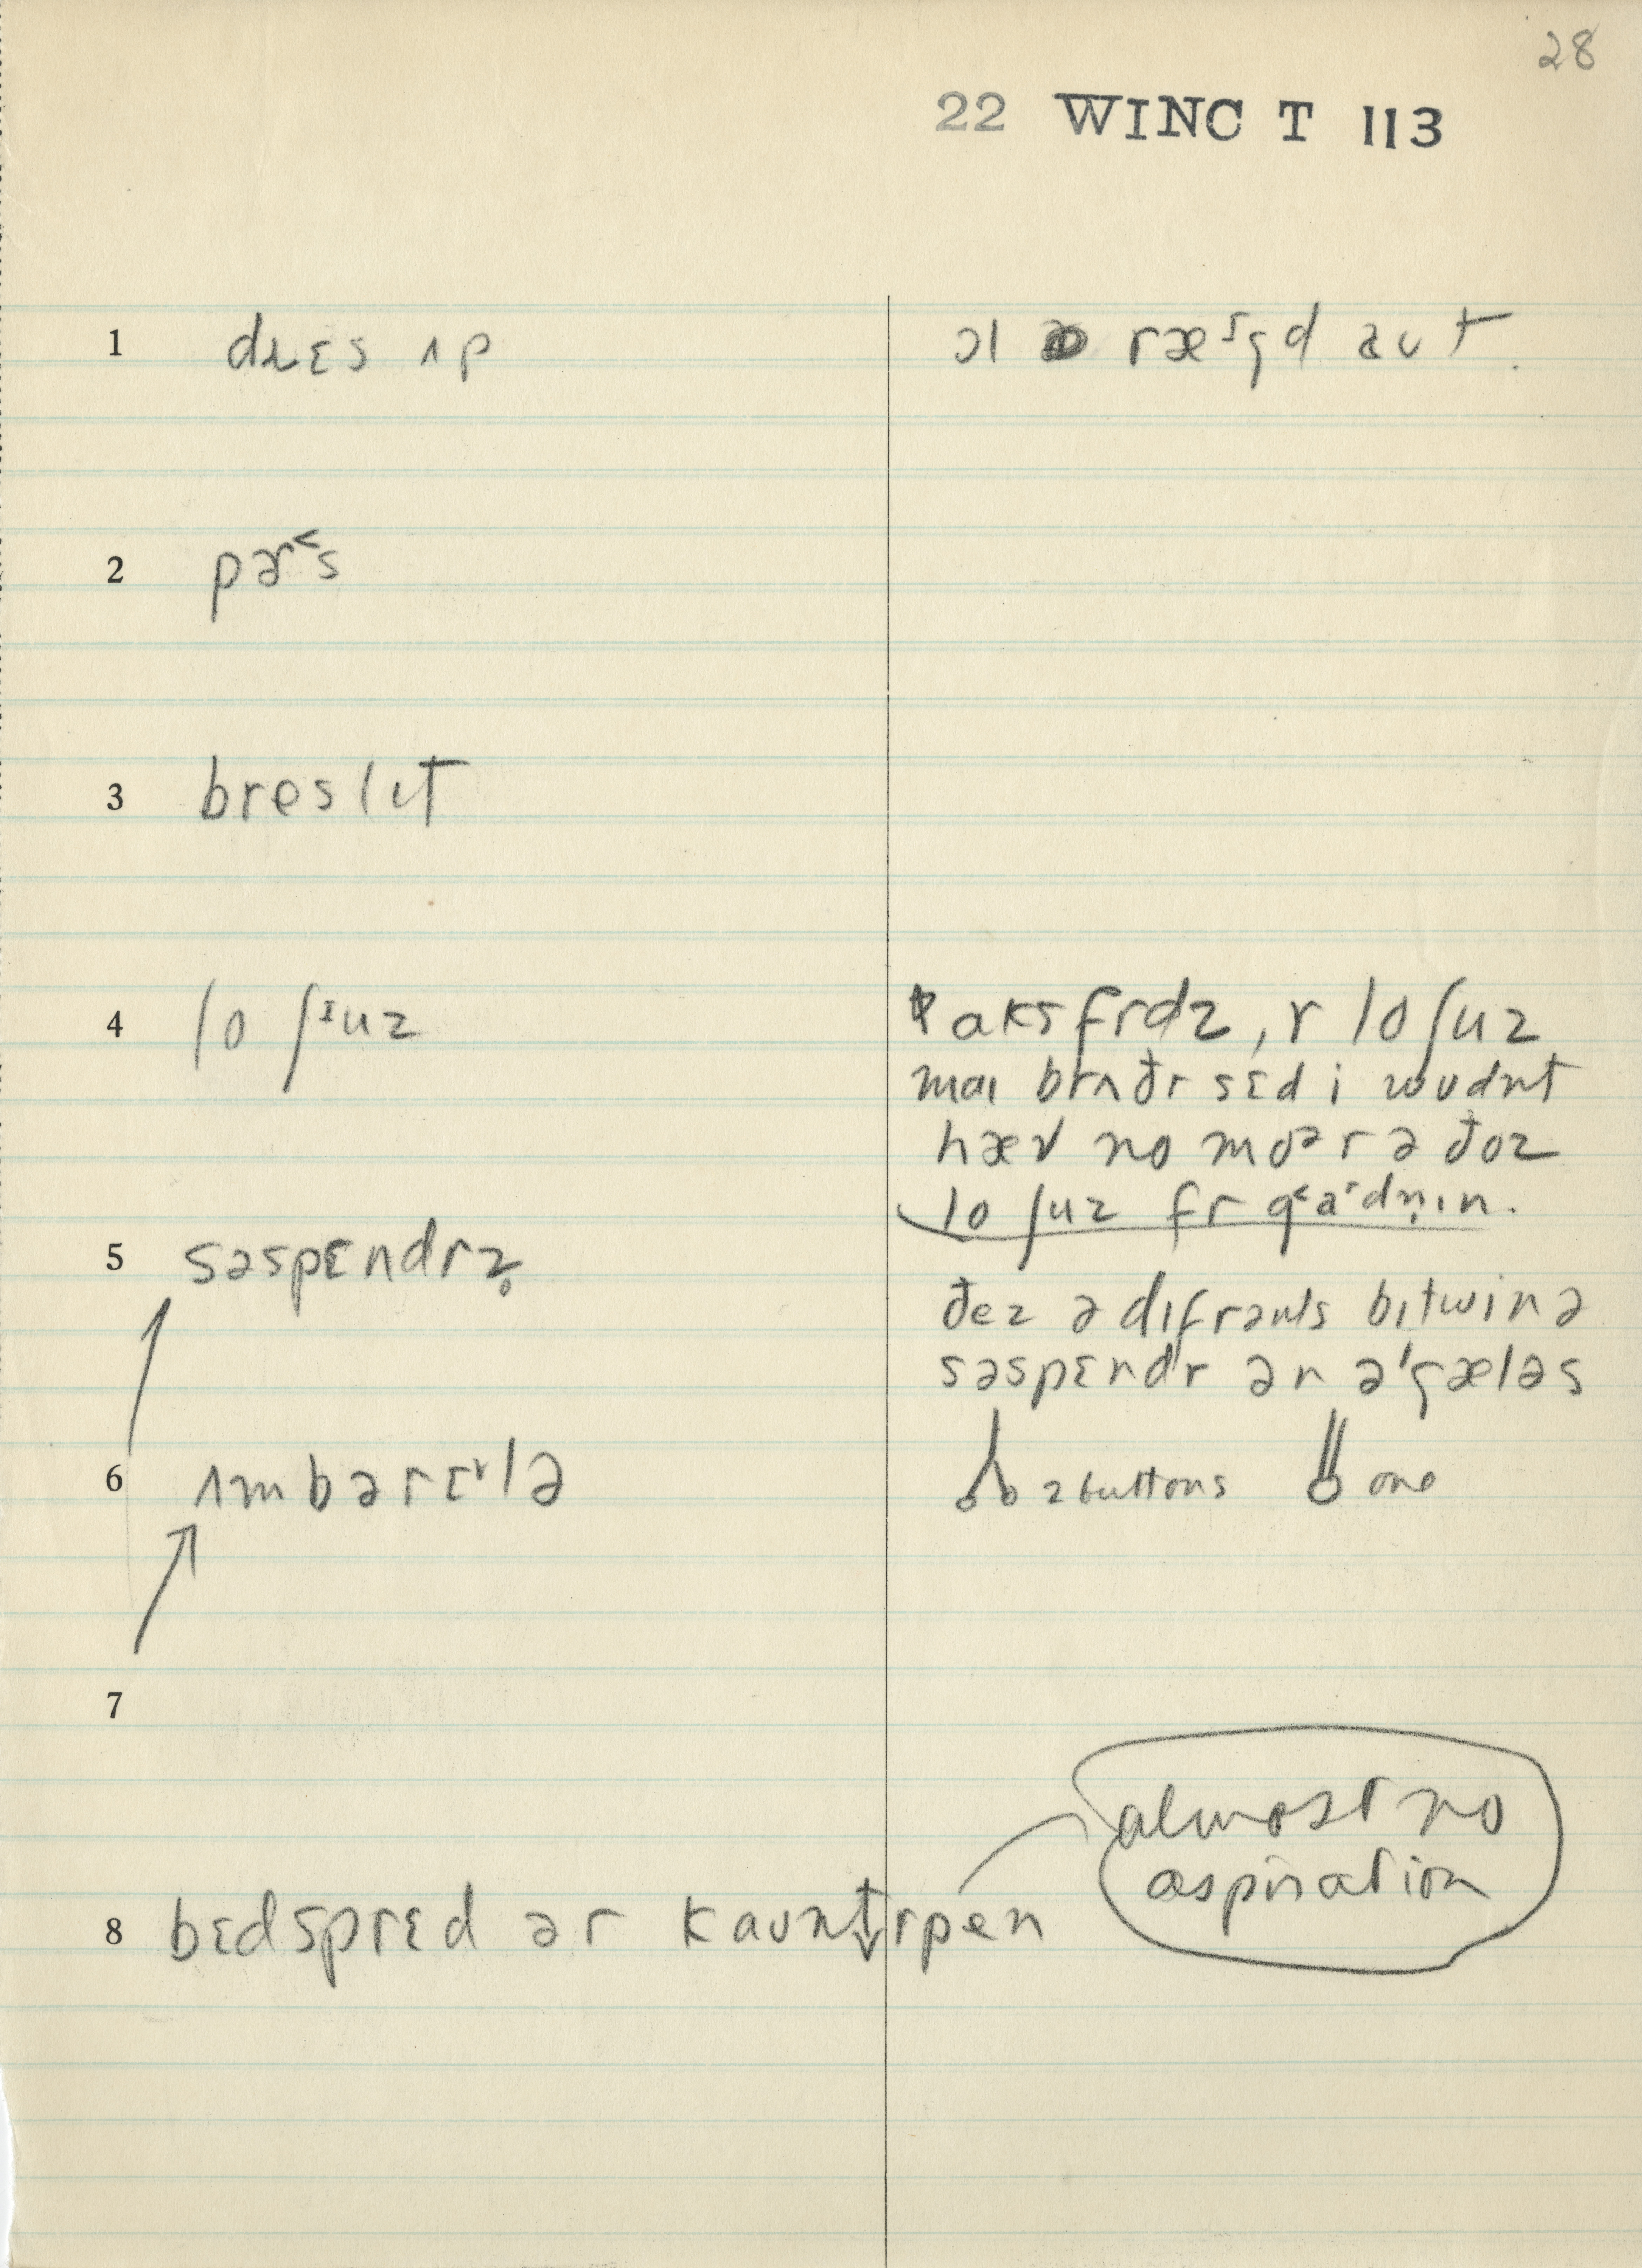 28
22 WINC T 113
1 dɹɛs ʌp
ɔl ræˤgd aʊt.
2 pɚ˂s
3 breslɪt
4 lo ʃᶦuz
aksfrdz, r lo ʃuz
maɪ brʌðr sɛd i wʊdnt
hæv no moᵊr ə ðoz
lo ʃuz fr g˂aʳdn̩ɪn.
5 səspɛndrz̥
ðez ə dɪfrənts bɪtwin ə
səspɛndr ən ə'gæləs
6 ʌmbərɛ˅lə
2 buttons one
7
almost no
aspiration
8 bɛdsprɛd ər kaʊntrpen